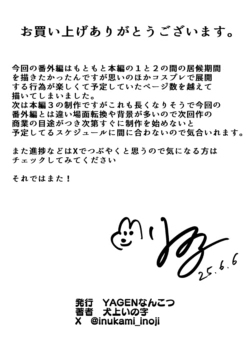 お買い上げありがとうございます。
今回の番外編はもともと本編の1と2の間の居候期間
を描きたかったんですが思いのほかコスプレで展開
する行為が楽しくて予定していたページ数を越えて
描いてしまいました。
次は本編3の制作ですがこれも長くなりそうで今回の
番外編とは違い場面転換や背景が多いので次回作の
商業の目途がつき次第すぐに制作を始めないと
予定してるスケジュールに間に合わないので気合いれます。
また進捗などはXでつぶやくと思うので気になる方は
チェックしてみてください
それではまた!
25.6.6
発行 YAGENなんこつ
著者 犬上いの字
X @inukami_inoji